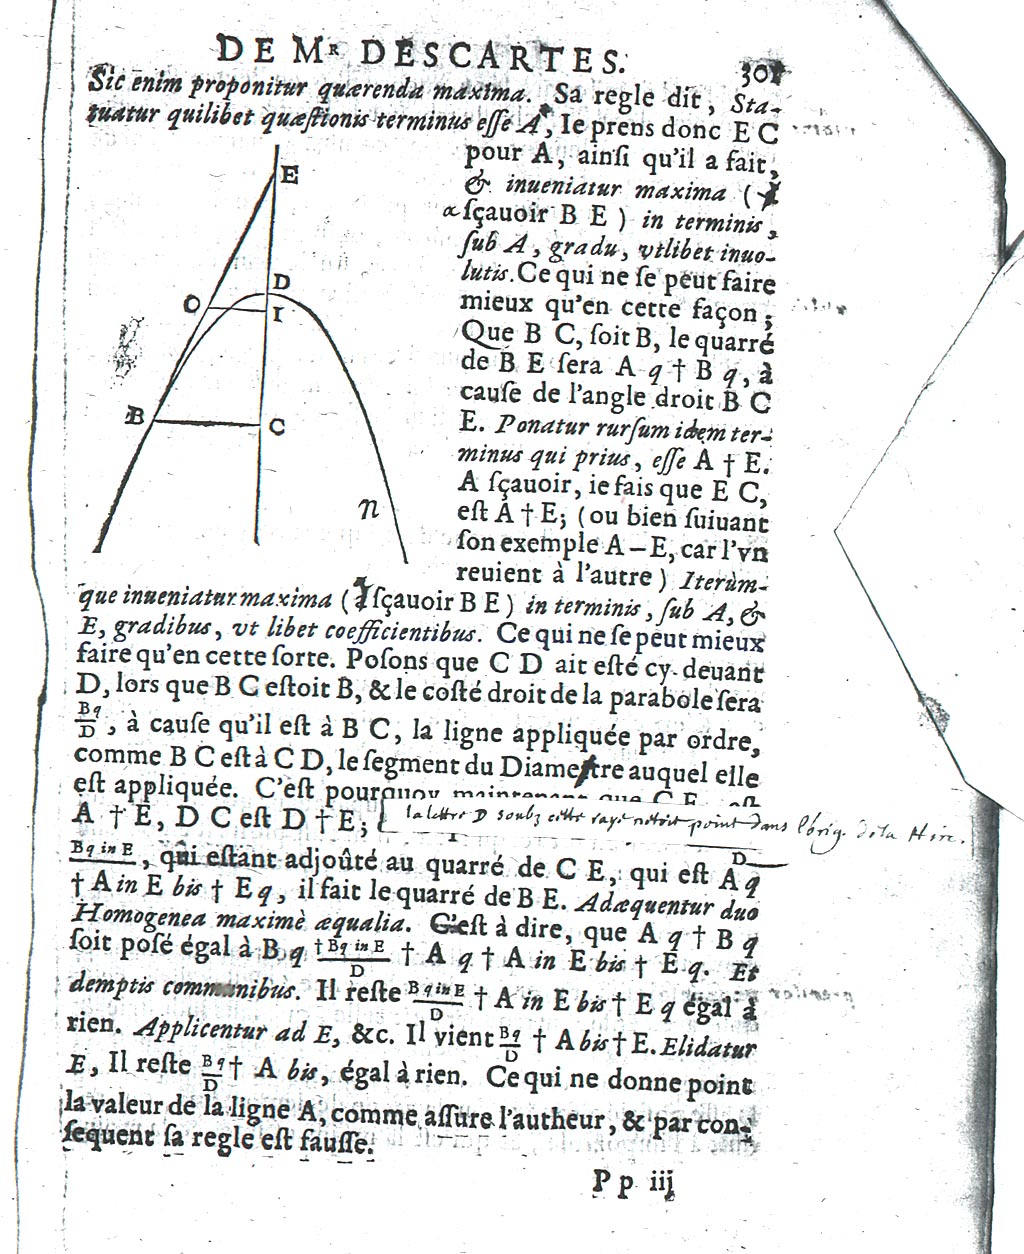 DE Mʀ DESCARTES. 301
Sic enim proponitur quærenda maxima. Sa regle dit, Sta-
tuatur quilibet quæstionis terminus esse A, Ie prens donc E C
pour A, ainſi qu'il a fait,
& inueniatur maxima (
ſçauoir B E ) in terminis,
ſub A, gradu, vtlibet inuo-
lutis. Ce qui ne ſe peut faire
mieux qu'en cette façon ;
Que B C, ſoit B, le quarré
de B E ſera A q † B q, à
cauſe de l'angle droit B C
E. Ponatur rurſum idem ter-
minus qui prius, eſſe A † E.
A ſçauoir, ie fais que E C,
eſt A † E; ( ou bien ſuiuant
ſon exemple A – E, car l'vn
reuient à l'autre ) Iterùm-
E
D
O
I
B
C
n
que inueniatur maxima (à ſçauoir B E ) in terminis, ſub A, &
E, gradibus, vt libet coefficientibus. Ce qui ne ſe peut mieux
faire qu'en cette ſorte. Poſons que C D ait eſté cy-deuant
D, lors que B C eſtoit B, & le coſté droit de la parabole ſera
Bq/D, à cauſe qu'il eſt à B C, la ligne appliquée par ordre,
comme B C eſt à C D, le ſegment du Diametre auquel elle
eſt appliquée. C'eſt pourquoy maintenant que C E eſt
A † E, D C eſt D † E; la lettre D soubz cette raye n'etoit point dans l'orig. de la Hire.
Bq in E/D, qui eſtant adjoûté au quarré de C E, qui eſt A q
† A in E bis † E q, il fait le quarré de B E. Adæquentur duo
Homogenea maximè æqualia. C'eſt à dire, que A q † B q
ſoit poſé égal à B q † Bq in E/D † A q † A in E bis † E q. Et
demptis communibus. Il reſte Bq in E/D † A in E bis † E q égal à
rien. Applicentur ad E, &c. Il vient Bq/D † A bis † E. Elidatur
E, Il reſte Bq/D † A bis, égal à rien. Ce qui ne donne point
la valeur de la ligne A, comme aſſure l'autheur, & par con-
ſequent ſa regle eſt fauſſe.
P p iij